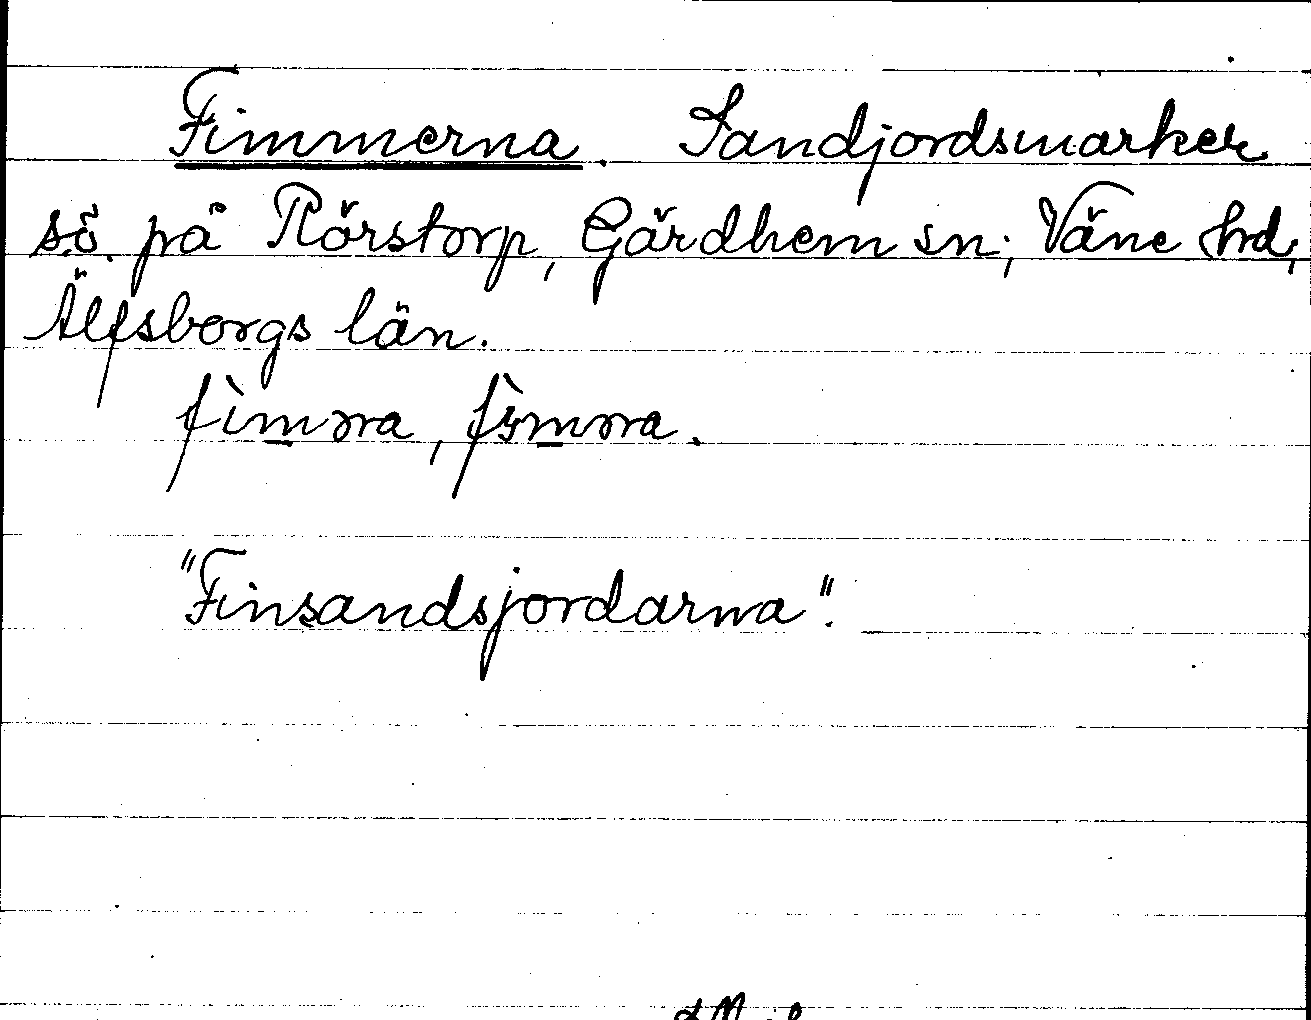 Fimmerna. Sandjordsmarker
s.ö. på Rörstorp, Gärdhem sn; Väne hrd,
Älfsborgs län.
fìmɔra, fỳmɔra.
"Finsandsjordarna".